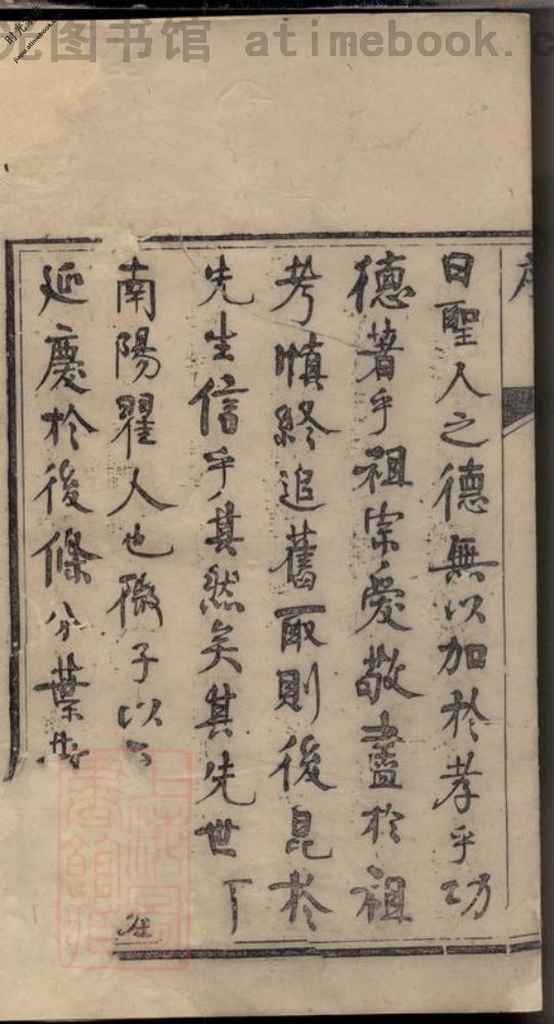 光图书馆 atimebook.c
序
曰聖人之德無以加於孝乎功
德著乎祖宗愛敬盡於祖
考慎終追舊取則後昆於
先生信乎其然矣其先世
南陽瞿人也微子以
延慶於後條分葉
上海圖
書館藏